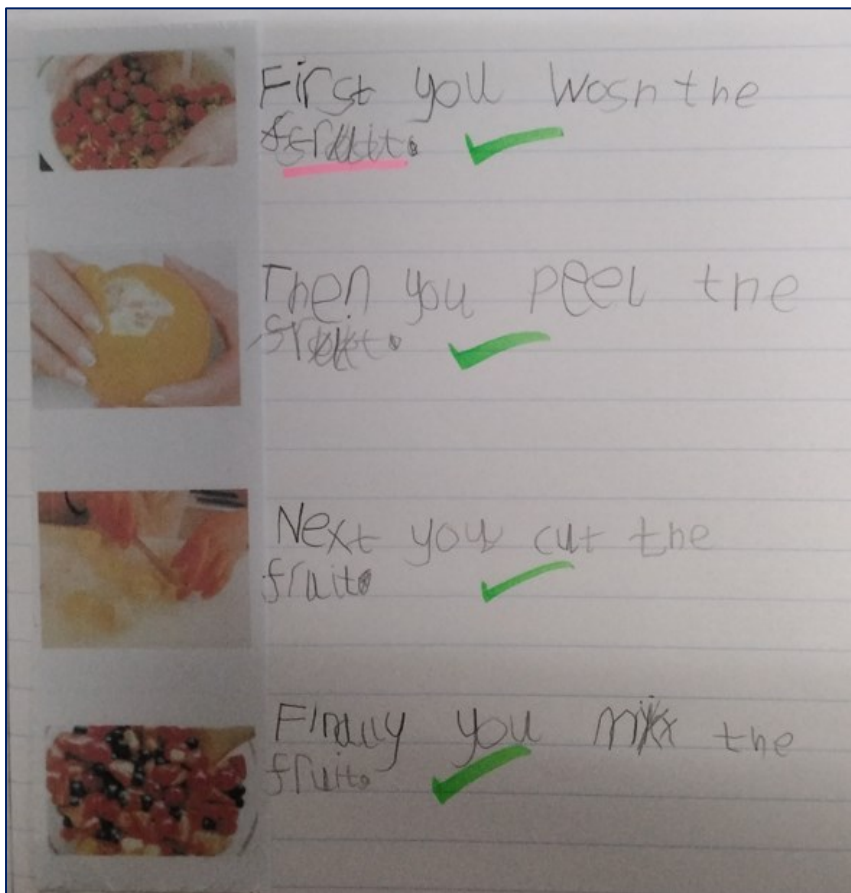 First you Wosh the
fruit.
Then you peel the
fruit.
Next you cut the
fruit.
Finally you mix the
fruit.